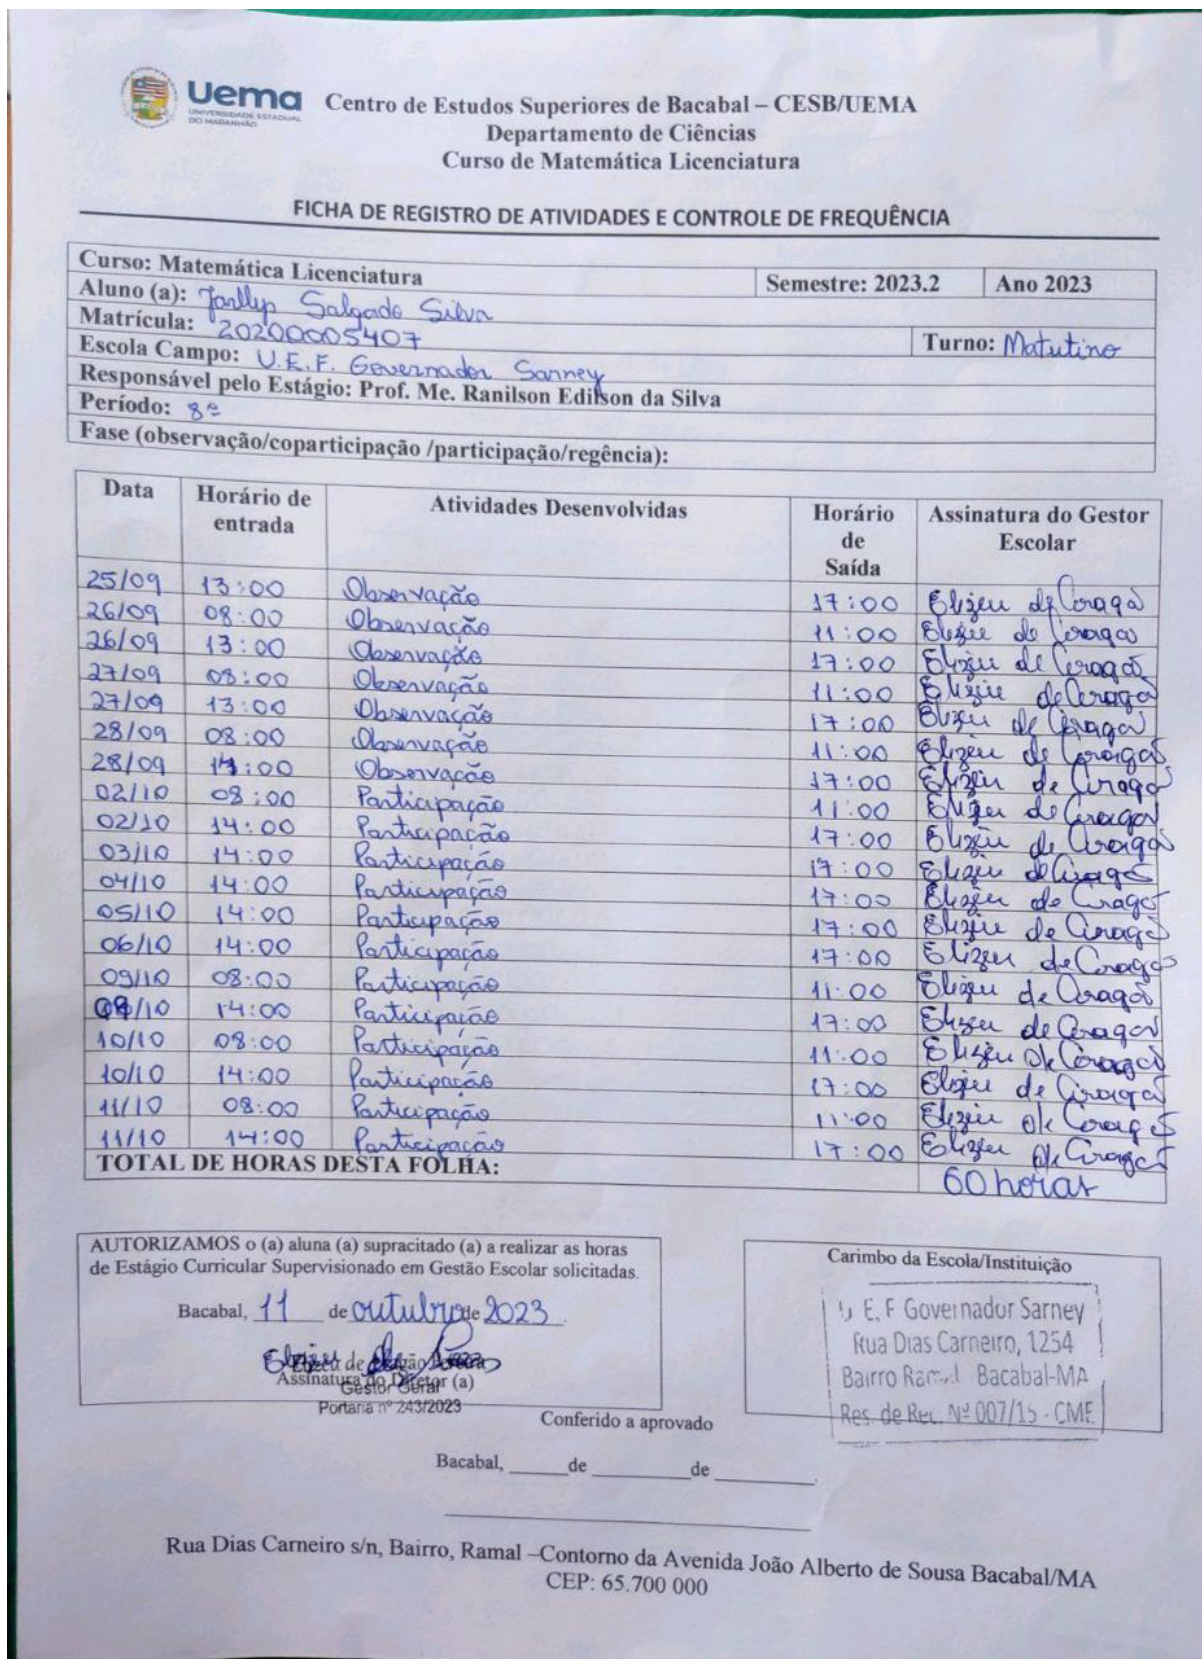 Uema
UNIVERSIDADE ESTADUAL
DO MARANHÃO
Centro de Estudos Superiores de Bacabal – CESB/UEMA
Departamento de Ciências
Curso de Matemática Licenciatura
FICHA DE REGISTRO DE ATIVIDADES E CONTROLE DE FREQUÊNCIA
Curso: Matemática Licenciatura Semestre: 2023.2 Ano 2023
Aluno (a): Jarllyp Salgado Silva
Matrícula: 20200005407 Turno: Matutino
Escola Campo: U.E.F. Governador Sarney
Responsável pelo Estágio: Prof. Me. Ranilson Edilson da Silva
Período: 8º
Fase (observação/coparticipação /participação/regência):
Data Horário de entrada Atividades Desenvolvidas Horário de Saída Assinatura do Gestor Escolar
25/09 13:00 Observação 17:00 Elizeu de
26/09 08:00 Observação 11:00 Elizeu de
26/09 13:00 Observação 17:00 Elizeu de
27/09 08:00 Observação 11:00 Elizeu de
27/09 13:00 Observação 17:00 Elizeu de
28/09 08:00 Observação 11:00 Elizeu de
28/09 14:00 Observação 17:00 Elizeu de
02/10 08:00 Participação 11:00 Elizeu de
02/10 14:00 Participação 17:00 Elizeu de
03/10 14:00 Participação 17:00 Elizeu de
04/10 14:00 Participação 17:00 Elizeu de
05/10 14:00 Participação 17:00 Elizeu de
06/10 14:00 Participação 17:00 Elizeu de
09/10 08:00 Participação 11:00 Elizeu de
09/10 14:00 Participação 17:00 Elizeu de
10/10 08:00 Participação 11:00 Elizeu de
10/10 14:00 Participação 17:00 Elizeu de
11/10 08:00 Participação 11:00 Elizeu de
11/10 14:00 Participação 17:00 Elizeu de
TOTAL DE HORAS DESTA FOLHA: 60 horas
AUTORIZAMOS o (a) aluna (a) supracitado (a) a realizar as horas
de Estágio Curricular Supervisionado em Gestão Escolar solicitadas.
Bacabal, 11 de outubro de 2023
Assinatura do Diretor (a)
Gestor Geral
Portaria nº 243/2023
Carimbo da Escola/Instituição
U. E. F Governador Sarney
Rua Dias Carneiro, 1254
Bairro Ramal Bacabal-MA
Res. de Rec. Nº 007/15 - CME
Conferido a aprovado
Bacabal, ______de __________de __________.
Rua Dias Carneiro s/n, Bairro, Ramal –Contorno da Avenida João Alberto de Sousa Bacabal/MA
CEP: 65.700 000